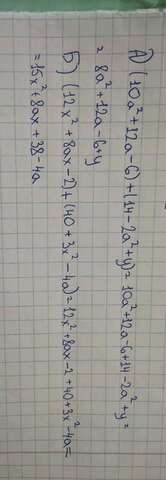 А) (10a²+12a-6)+(14-2a²+y)=10a²+12a-6+14-2a²+y=
= 8a²+12a-6+y
Б) (12x²+8ax-2)+(40+3x²-4a)=12x²+8ax-2+40+3x²-4a=
=15x²+8ax+38-4a